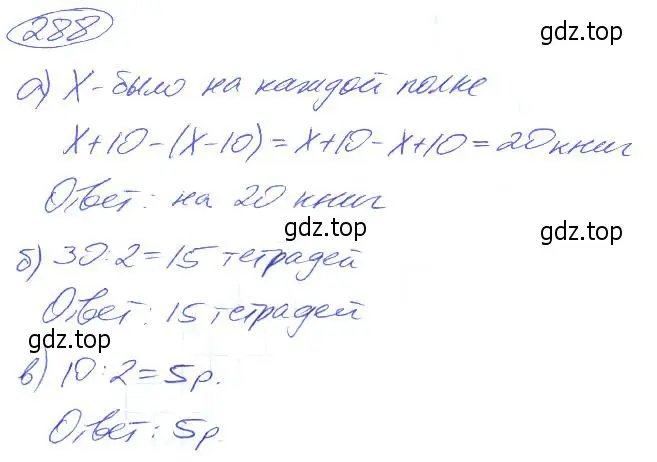 288
gdz.top
а) X - было на каждой полке
X+10-(X-10)=X+10-X+10=20 книг
gdz.top
Ответ: на 20 книг
gdz.top
gdz.top
б) 30:2=15 тетрадей
Ответ: 15 тетрадей
gdz.top
в) 10:2=5р.
Ответ: 5р.
gdz.top
gdz.top